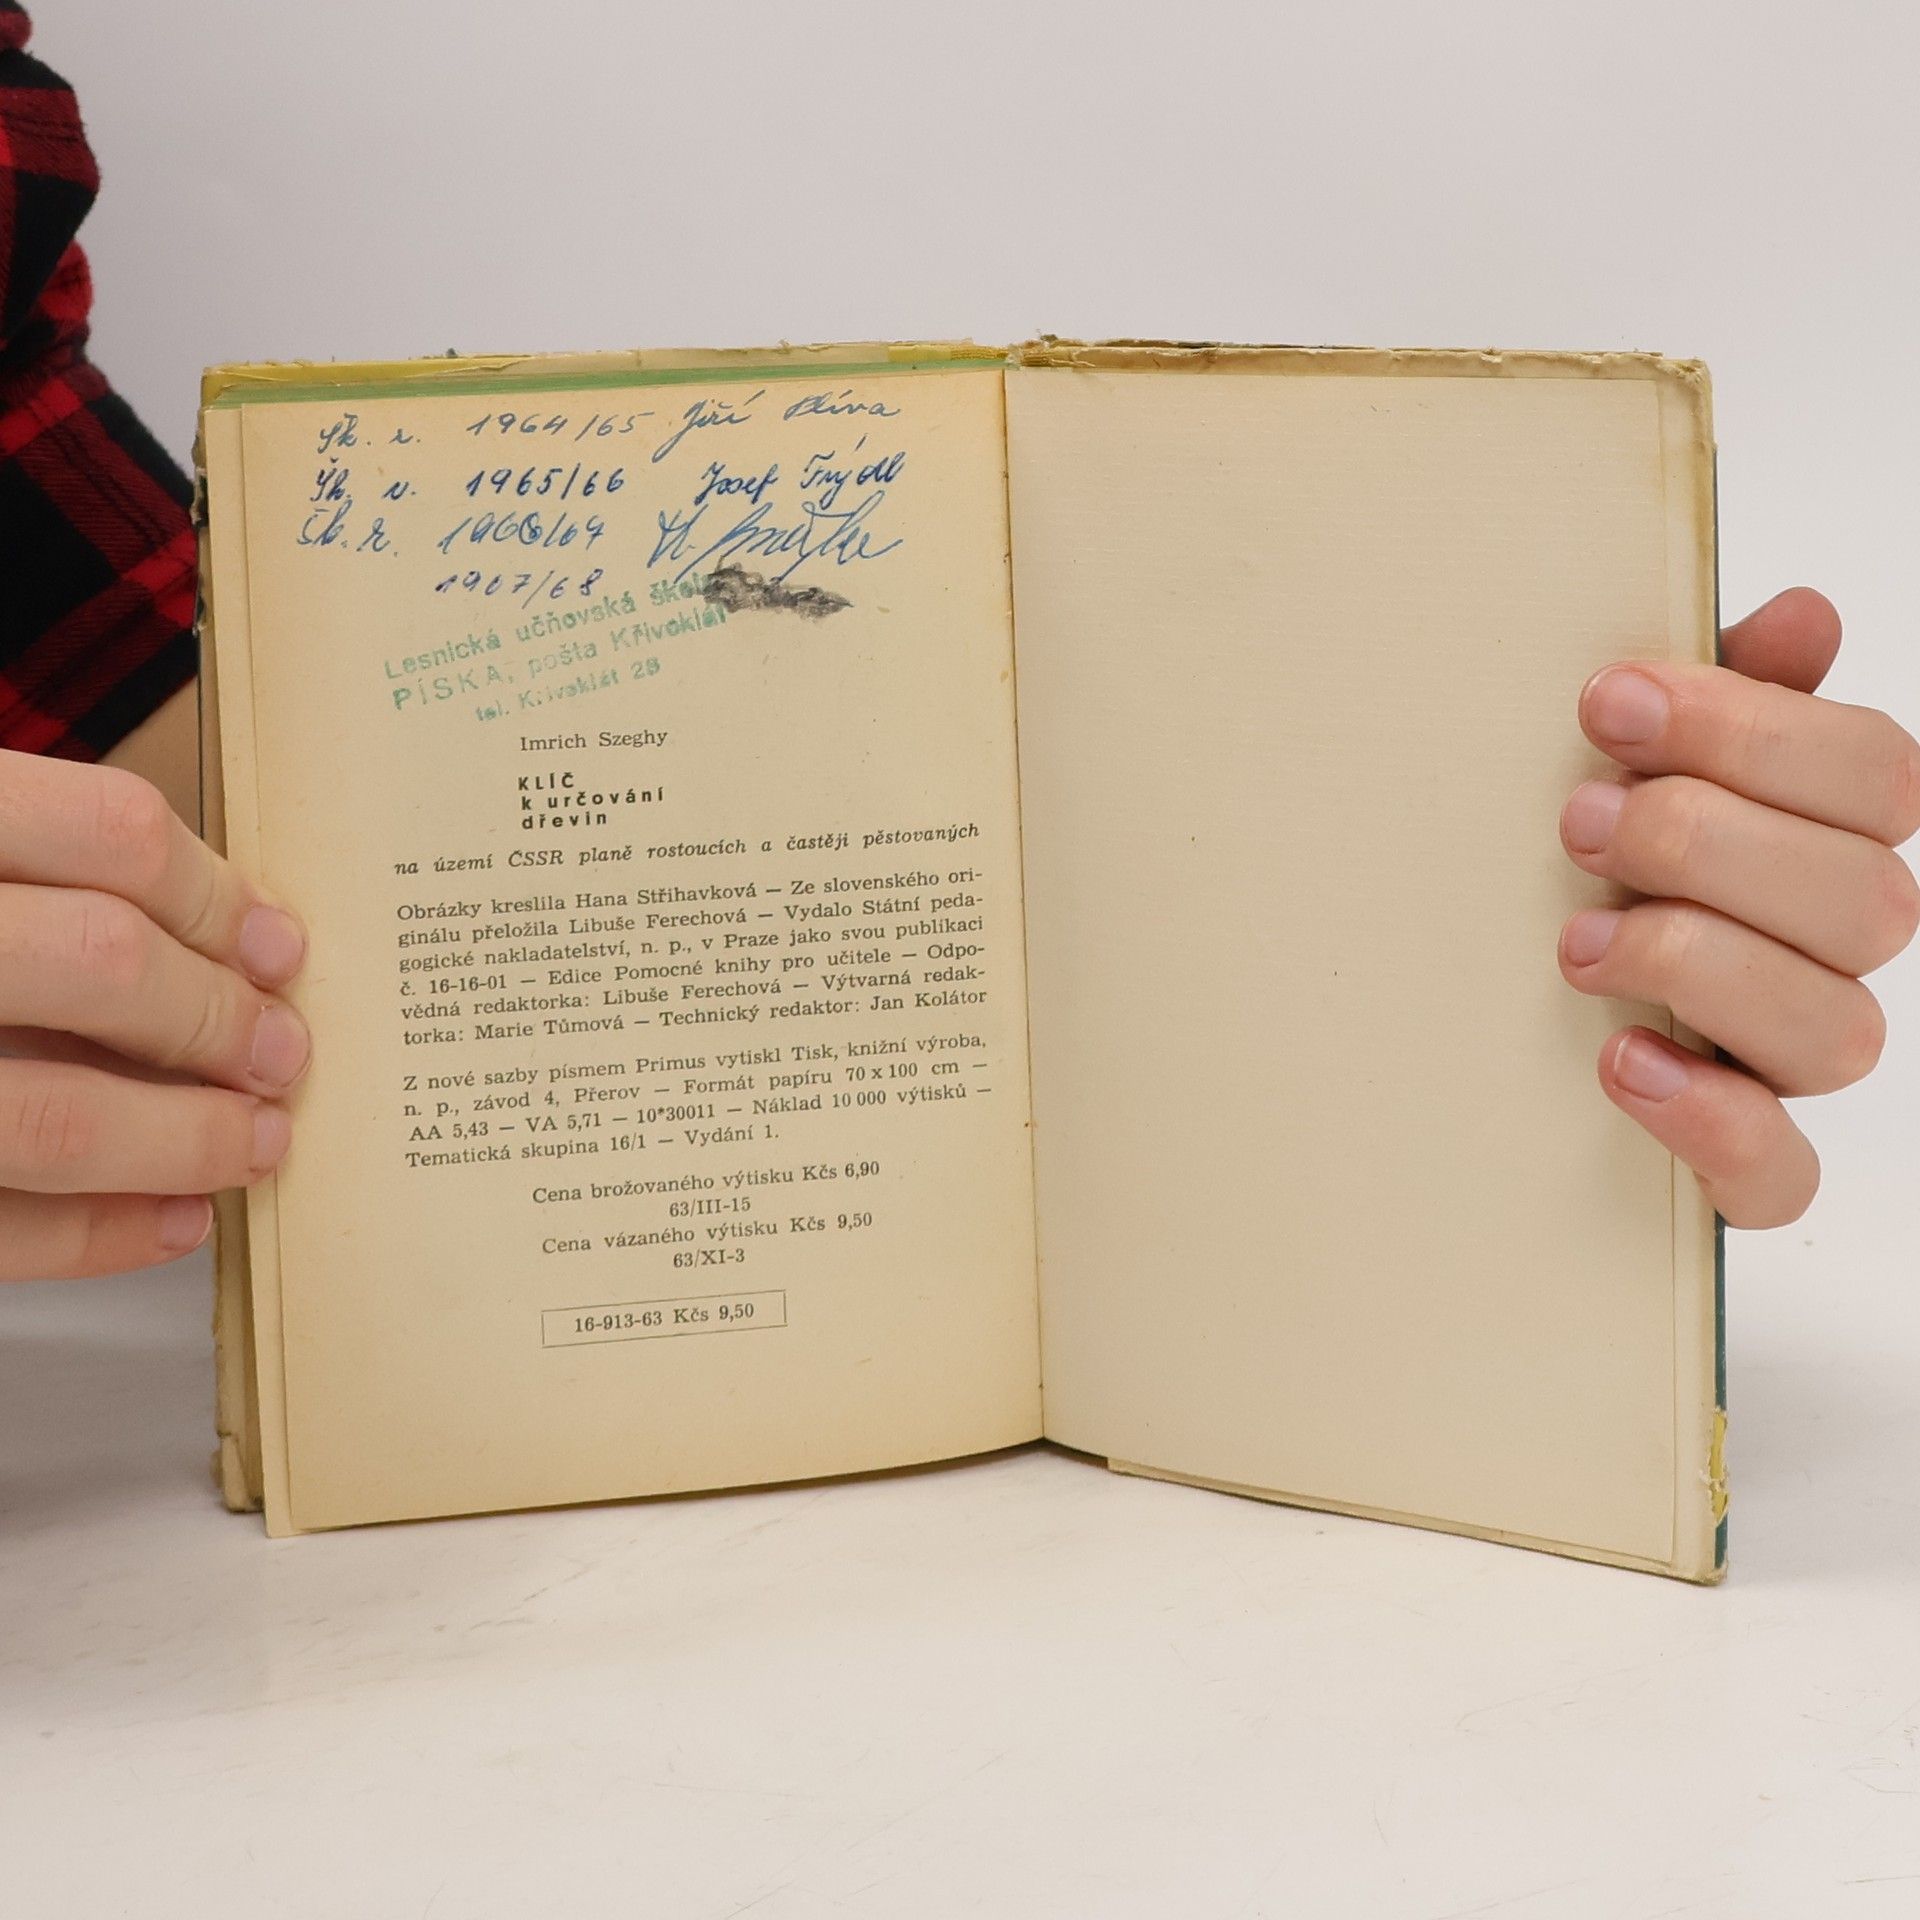 Šk. r. 1964/65 Jiří Slíva
Šk. r. 1965/66 Josef Frýdl
Šk. r. 1966/67
1967/68
Lesnická učňovská škola
PÍSKA, pošta Křivoklát
tel. Křivoklát 28
Imrich Szeghy
KLÍČ
k určování
dřevin
na území ČSSR planě rostoucích a častěji pěstovaných
Obrázky kreslila Hana Střihavková — Ze slovenského ori-
ginálu přeložila Libuše Ferechová — Vydalo Státní peda-
gogické nakladatelství, n. p., v Praze jako svou publikaci
č. 16-16-01 — Edice Pomocné knihy pro učitele — Odpo-
vědná redaktorka: Libuše Ferechová — Výtvarná redak-
torka: Marie Tůmová — Technický redaktor: Jan Kolátor
Z nové sazby písmem Primus vytiskl Tisk, knižní výroba,
n. p., závod 4, Přerov — Formát papíru 70 x 100 cm —
AA 5,43 — VA 5,71 — 10*30011 — Náklad 10 000 výtisků —
Tematická skupina 16/1 — Vydání 1.
Cena brožovaného výtisku Kčs 6,90
63/III-15
Cena vázaného výtisku Kčs 9,50
63/XI-3
16-913-63 Kčs 9,50